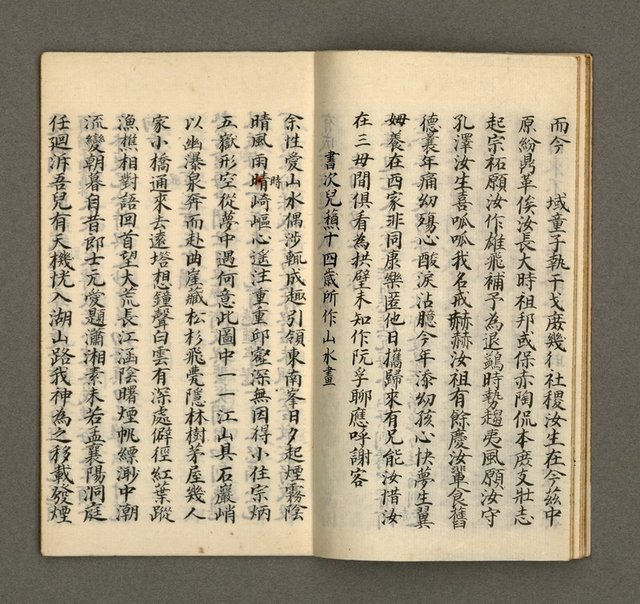 而今 域童子執干戈庶幾 社稷汝生在今茲中
原紛鼎革俟汝長大時祖邦或保赤陶侃本庶支壯志
起宗祏願汝作雄飛補予為退鷁時勢趨夷風願汝守
孔澤汝生喜呱呱我名戒赫赫汝祖有餘慶汝輩食舊
德曩年痛幼殤心酸淚沾臆今年添幼孩心快夢生翼
姆養在西家非同康樂匿他日攜歸來有兄能汝惜汝
在三毋間俱看為拱璧未知作阮孚聊應呼謝客
書次兒積十四歲所作山水畫
余性愛山水偶涉輒成趣引領東南峯日夕起煙霧陰
晴風雨時崎嶇心遙注重重邱壑深無因得小住宗炳
五嶽形空從夢中遇何意此圖中一一江山具石巖峭
以幽瀑泉奔而赴曲崖藏松杉飛甍隱林樹茅屋幾人
家小橋通來去遠塔想鐘聲白雲有深處僻徑紅葉蹤
漁樵相對語回首望大荒長江涵陰曙煙帆縹渺中潮
流變朝暮自昔郎士元愛題瀟湘素未若孟襄陽洞庭
任迴泝吾兒有天機恍入湖山路我神為之移載發煙